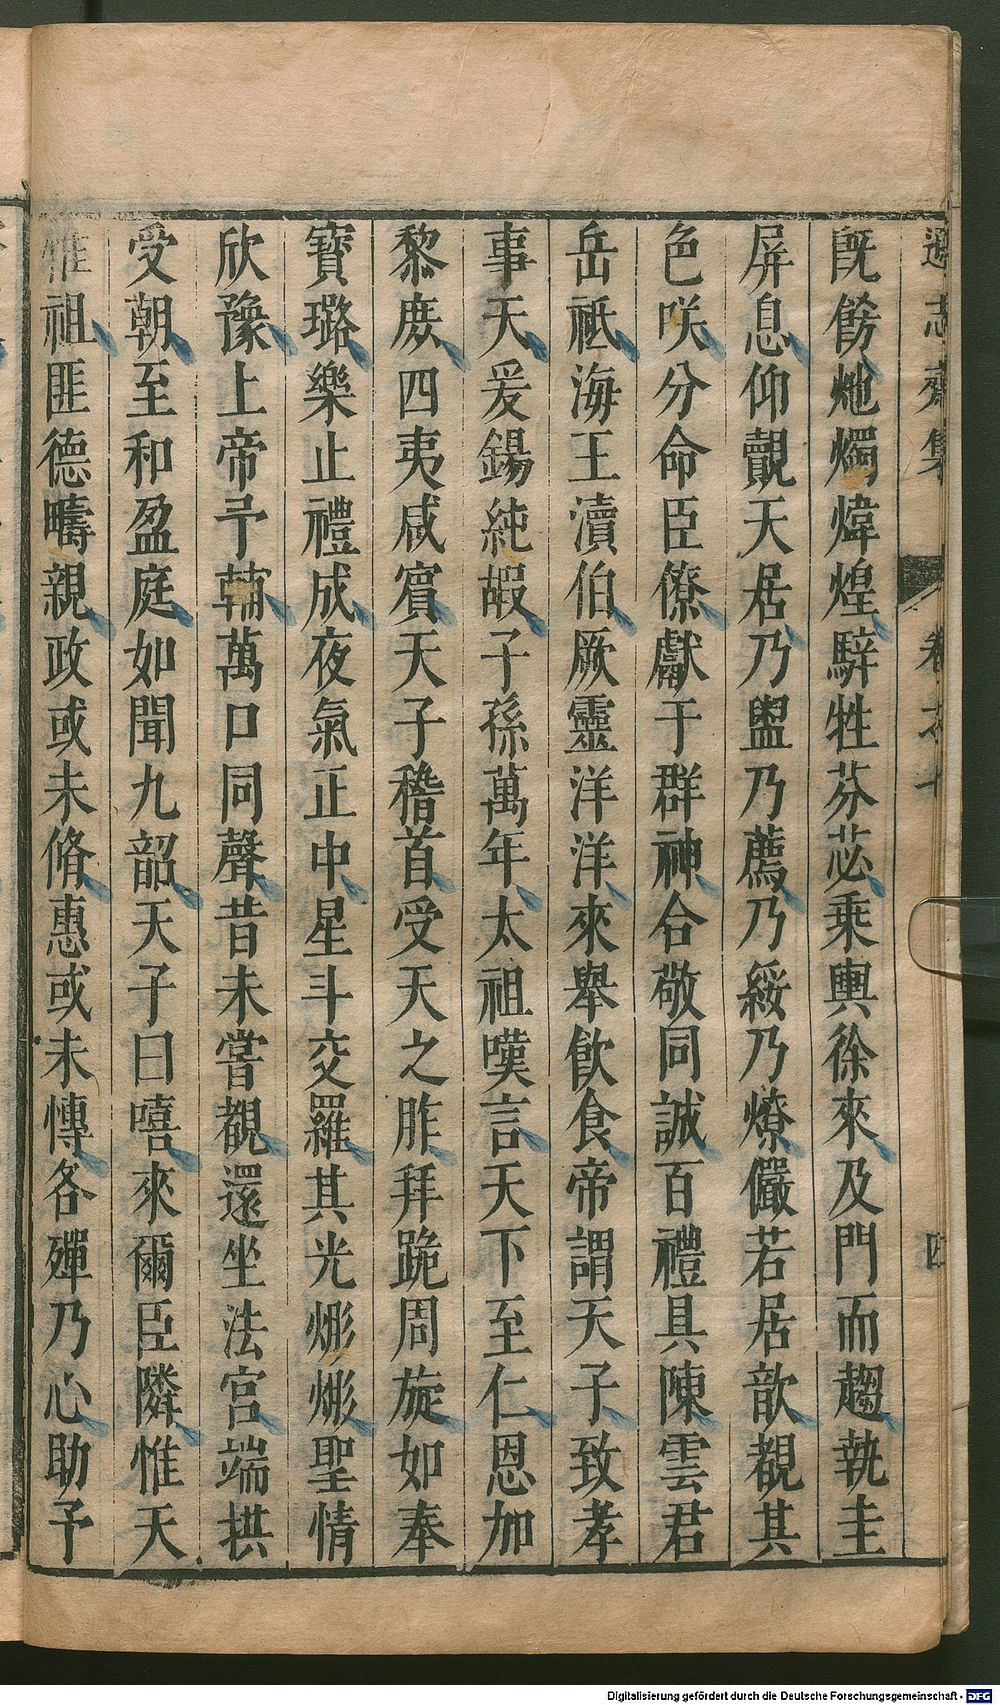 遜志齋集 卷之 四
旣餝灺燭煒煌騂牲芬苾乘輿徐來及門而趨執圭
屏息仰覿天居乃盥乃薦乃綏乃燎儼若居歆覩其
色咲分命臣僚獻于群神合敬同誠百禮具陳雲君
岳祗海王瀆伯厥靈洋洋來舉飲食帝謂天子致孝
事天爰錫純嘏子孫萬年太祖嘆言天下至仁恩加
黎庶四夷咸賓天子稽首受天之胙拜跪周旋如奉
寶璐樂止禮成夜氣正中星斗交羅其光彨彨聖情
欣豫上帝予輔萬口同聲昔未嘗覩還坐法宮端拱
受朝至和盈庭如聞九韶天子曰嘻來爾臣隣惟天
惟祖匪德疇親政或未脩惠或未慱各殫乃心助予
Digitalisierung gefördert durch die Deutsche Forschungsgemeinschaft - DFG